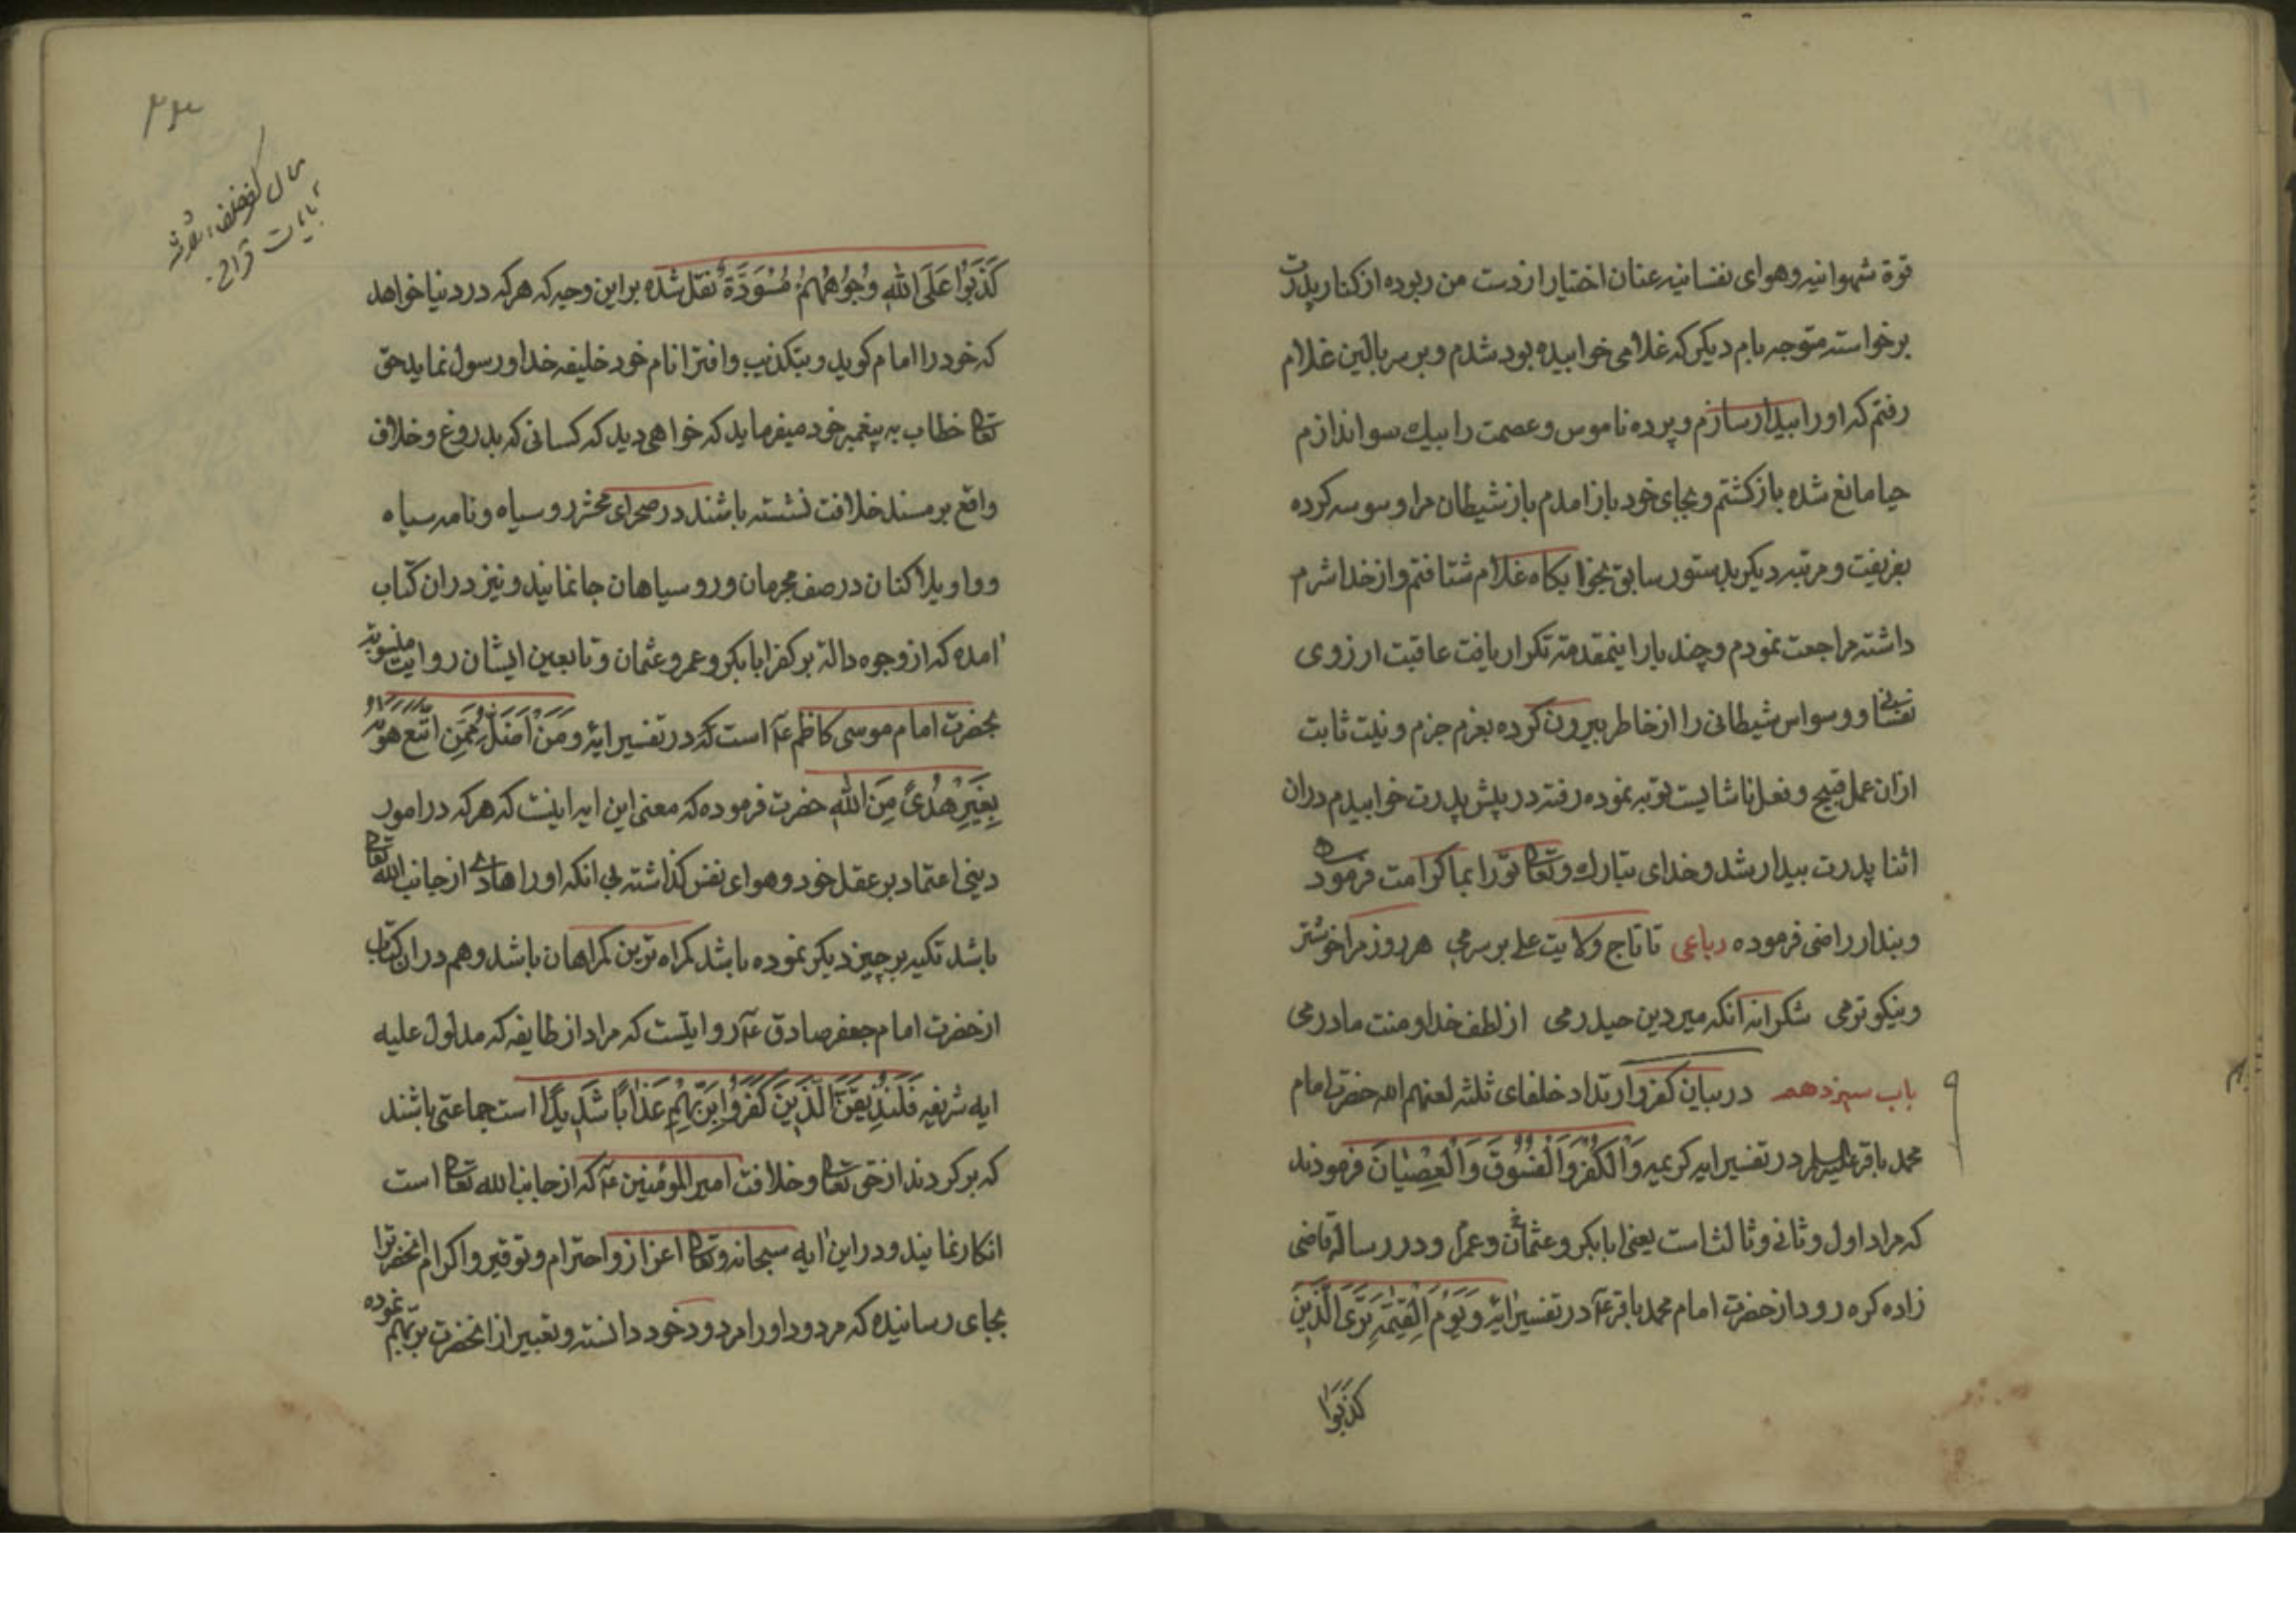 قوة شهوانیه و هوای نفسانیه عنان اختیار از دست من ربوده از کنار پدرت
برخواسته متوجه بام دیکر که غلامی خوابیده بود شدم و بر سر بالین غلام
رفتم که او را بیدار سازم و پرده ناموس و عصمت را بیك سو اندازم
حیا مانع شده باز کشتم و بجای خود باز امدم باز شیطان مرا وسوسه کرده
بفریفت و مرتبه دیکر بدستور سابق بخوابکاه غلام شتافتم و از خدا شرم
داشته مراجعت نمودم و چند بار اینمقدمه تکرار یافت عاقبت ارزوی
نفسانی و وسواس شیطانی را از خاطر بیرون کرده بعزم جزم و نیت ثابت
ازان عمل قبیح و فعل ناشایست توبه نموده رفته در پیش پدرت خوابیدم دران
اثنا پدرت بیدار شد و خدای تبارك و تعالی تو را بما کرامت فرموده
و بندار راضی فرموده رباعی تا تاج ولایت علی بر سرمی هر روز مرا خوشتر
و نیکوترمی شکرانه انکه میر دین حیدرمی از لطف خدا و منت مادرمی
باب سیزدهم در بیان کفر و ارتداد خلفای ثلثه لعنهم الله حضرت امام
محمد باقر علیه السلم در تفسیر ایه کریمه وَالْکُفْرَ وَالْفُسُوقَ وَالْعِصْیَانَ فرمودند
که مراد اول و ثانی و ثالث است یعنی ابابکر و عثمان و عمر و در رساله قاضی
زاده کره رود از حضرت امام محمد باقر عٓ در تفسیر ایهٔ وَیَوْمَ الْقِیٰمَةِ تَرَی الَّذِینَ
کَذَبُوا
۲۳
کفر خلفاء ثلاثه
بایات قرانی
کَذَبُوا عَلَی اللهِ وُجُوهُهُمْ مُسْوَدَّةٌ نقل شده بر این وجه که هرکه در دنیا خواهد
که خود را امام کوید و بتکذیب و افترا نام خود خلیفه خدا و رسول نماید حق
تعالی خطاب به پیغمبر خود میفرماید که خواهی دید که کسانی که بدروغ و خلاف
واقع بر مسند خلافت نشسته باشند در صحرای محشر رو سیاه و نامه سیاه
و واویلا کنان در صف مجرمان و رو سیاهان جا نمانید و نیز دران کتاب
امده که از وجوه دالة بر کفر ابابکر و عمر و عثمان و تابعین ایشان روایت منسوبه
بحضرت امام موسی کاظم عٓ است که در تفسیر ایهٔ وَمَنْ اَضَلُّ مِمَّنِ اتَّبَعَ هَوٰیهُ
بِغَیْرِ هُدًی مِنَ اللهِ حضرت فرموده که معنی این ایه اینست که هرکه در امور
دینی اعتماد بر عقل خود و هوای نفس کذاشته بی انکه او را هادی از جانب الله تعالی
باشد تکیه بر چیز دیکر نموده باشد کمراه ترین کمراهان باشد و هم دران کتاب
از حضرت امام جعفر صادق عٓ روایتست که مراد از طایفه که مدلول علیه
ایه شریفه فَلَنُذِیقَنَّ الَّذِینَ کَفَرُوا بِرَبِّهِمْ عَذَابًا شَدِیدًا است جماعتی باشند
که برکردند از حق تعالی و خلافت امیر المؤمنین عٓ که از جانب الله تعالی است
انکار نمایند و در این ایه سبحانه و تعالی اعزاز و احترام و توقیر و اکرام انحضرترا
بجای رسانیده که مردود او را مردود خود دانسته و تعبیر از انحضرت بربّهم نموده